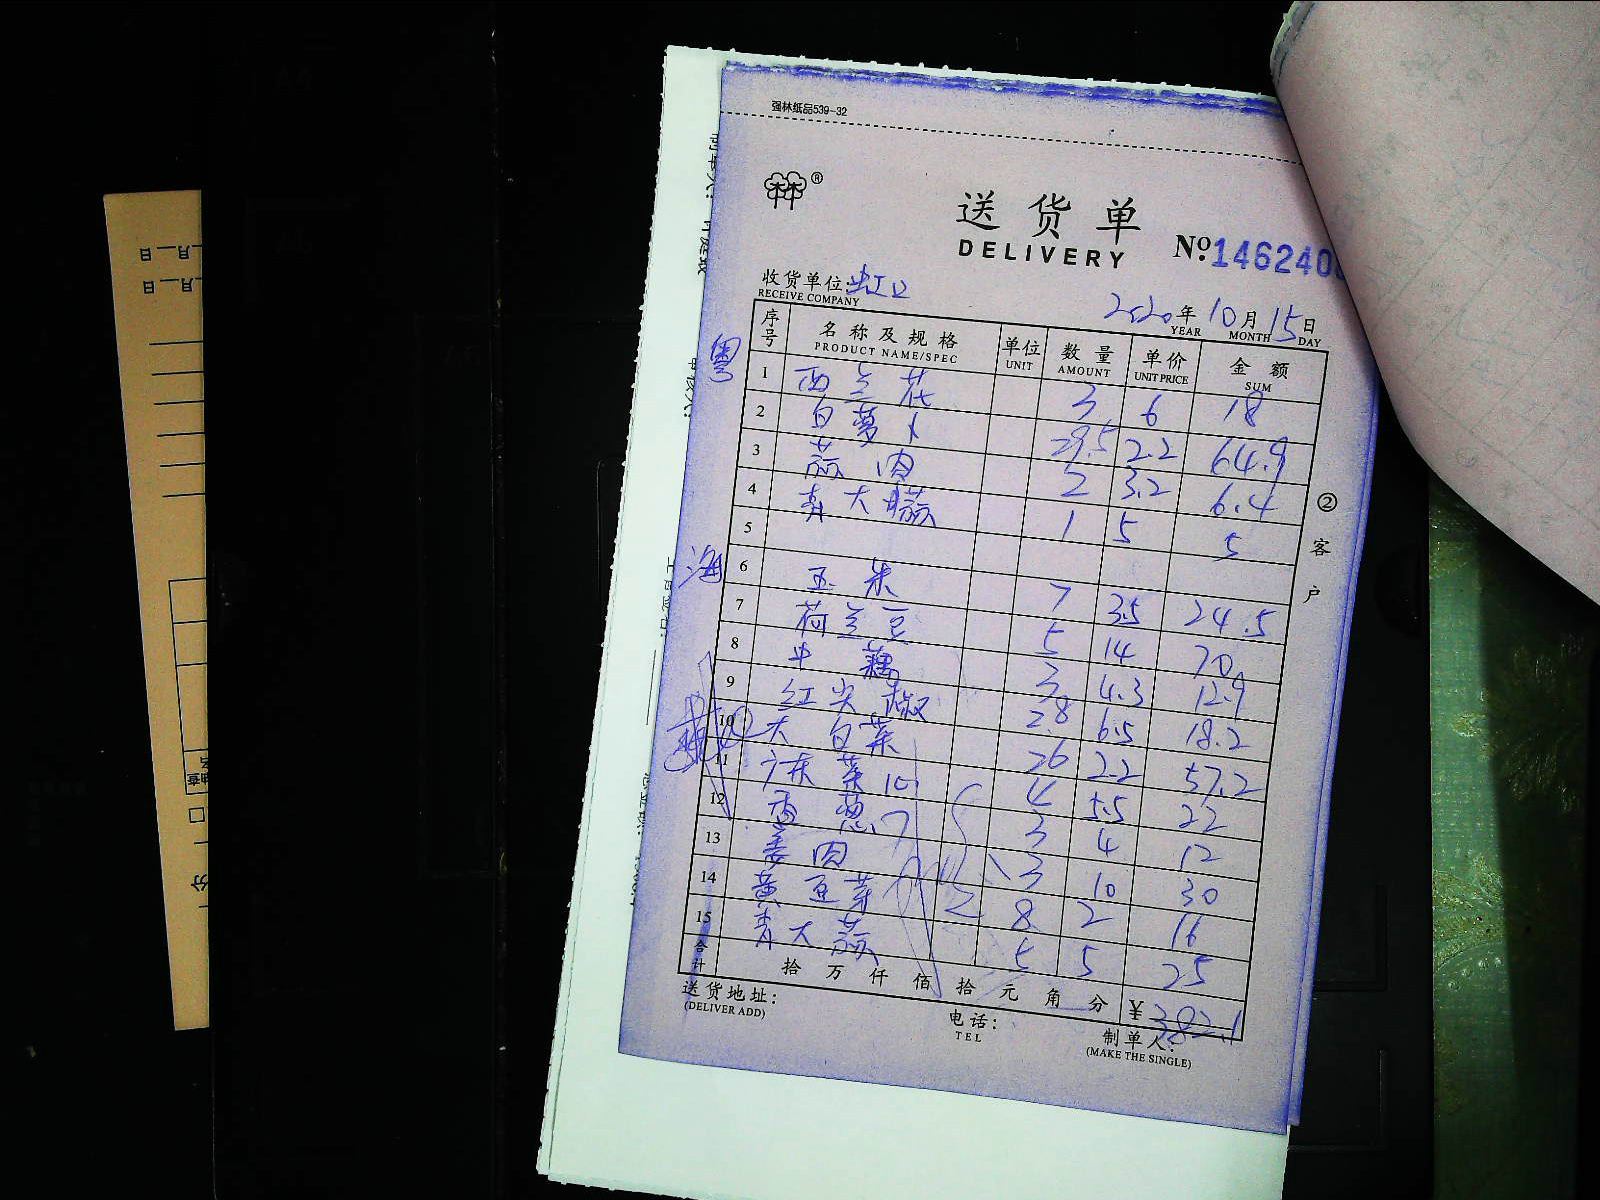 强林纸品539-32
送货单
DELIVERY
№ 146240
收货单位: 虹口
RECEIVE COMPANY
2020年10月15日
YEAR MONTH DAY
序号 名称及规格 单位 数量 单价 金额
PRODUCT NAME/SPEC UNIT AMOUNT UNIT PRICE SUM
粤
1 西兰花 3 6 18
2 白萝卜 29.5 2.2 64.9
3 蒜肉 2 3.2 6.4
4 青大蒜 1 5 5
5
海
6 玉米 7 3.5 24.5
7 荷兰豆 5 14 70
8 中藕 3 4.3 12.9
9 红尖椒 2.8 6.5 18.2
10 大白菜 26 2.2 57.2
11 广东菜 10 4 5.5 22
12 香葱 3 4 12
13 姜肉 3 10 30
14 黄豆芽 8 2 16
15 青大蒜 5 5 25
合计 拾万仟佰拾元角分 ¥382.1
送货地址:
(DELIVER ADD)
电话:
TEL
制单人:
(MAKE THE SINGLE)
②客户